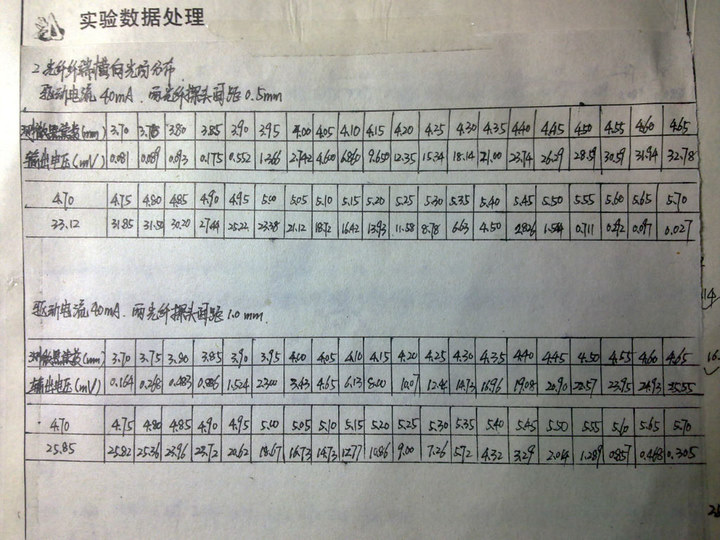 实验数据处理
2.光纤纤端横向光场分布
驱动电流 40mA. 两光纤探头间距 0.5mm
测微器读数(mm) 3.70 3.75 3.80 3.85 3.90 3.95 4.00 4.05 4.10 4.15 4.20 4.25 4.30 4.35 4.40 4.45 4.50 4.55 4.60 4.65
输出电压(mV) 0.081 0.089 0.093 0.175 0.552 1.366 2.742 4.600 6.860 9.650 12.35 15.34 18.14 21.00 23.74 26.29 28.59 30.59 31.94 32.78
4.70 4.75 4.80 4.85 4.90 4.95 5.00 5.05 5.10 5.15 5.20 5.25 5.30 5.35 5.40 5.45 5.50 5.55 5.60 5.65 5.70
33.12 31.85 31.50 30.20 27.44 25.22 23.38 21.12 18.72 16.42 13.93 11.58 8.78 6.63 4.50 2.826 1.544 0.711 0.292 0.097 0.027
驱动电流 40mA. 两光纤探头间距 1.0 mm.
测微器读数(mm) 3.70 3.75 3.80 3.85 3.90 3.95 4.00 4.05 4.10 4.15 4.20 4.25 4.30 4.35 4.40 4.45 4.50 4.55 4.60 4.65
输出电压(mV) 0.164 0.268 0.483 1.524 3.43 4.65 6.13 8.00 10.07 12.41 14.73 16.96 19.08 20.90 22.57 23.95 24.93 25.55
4.70 4.75 4.80 4.85 4.90 4.95 5.00 5.05 5.10 5.15 5.20 5.25 5.30 5.35 5.40 5.45 5.50 5.55 5.60 5.65 5.70
25.85 25.82 25.36 23.96 22.72 20.62 18.67 16.73 14.73 12.77 10.86 9.00 7.26 5.72 4.32 3.29 2.014 1.289 0.857 0.468 0.305